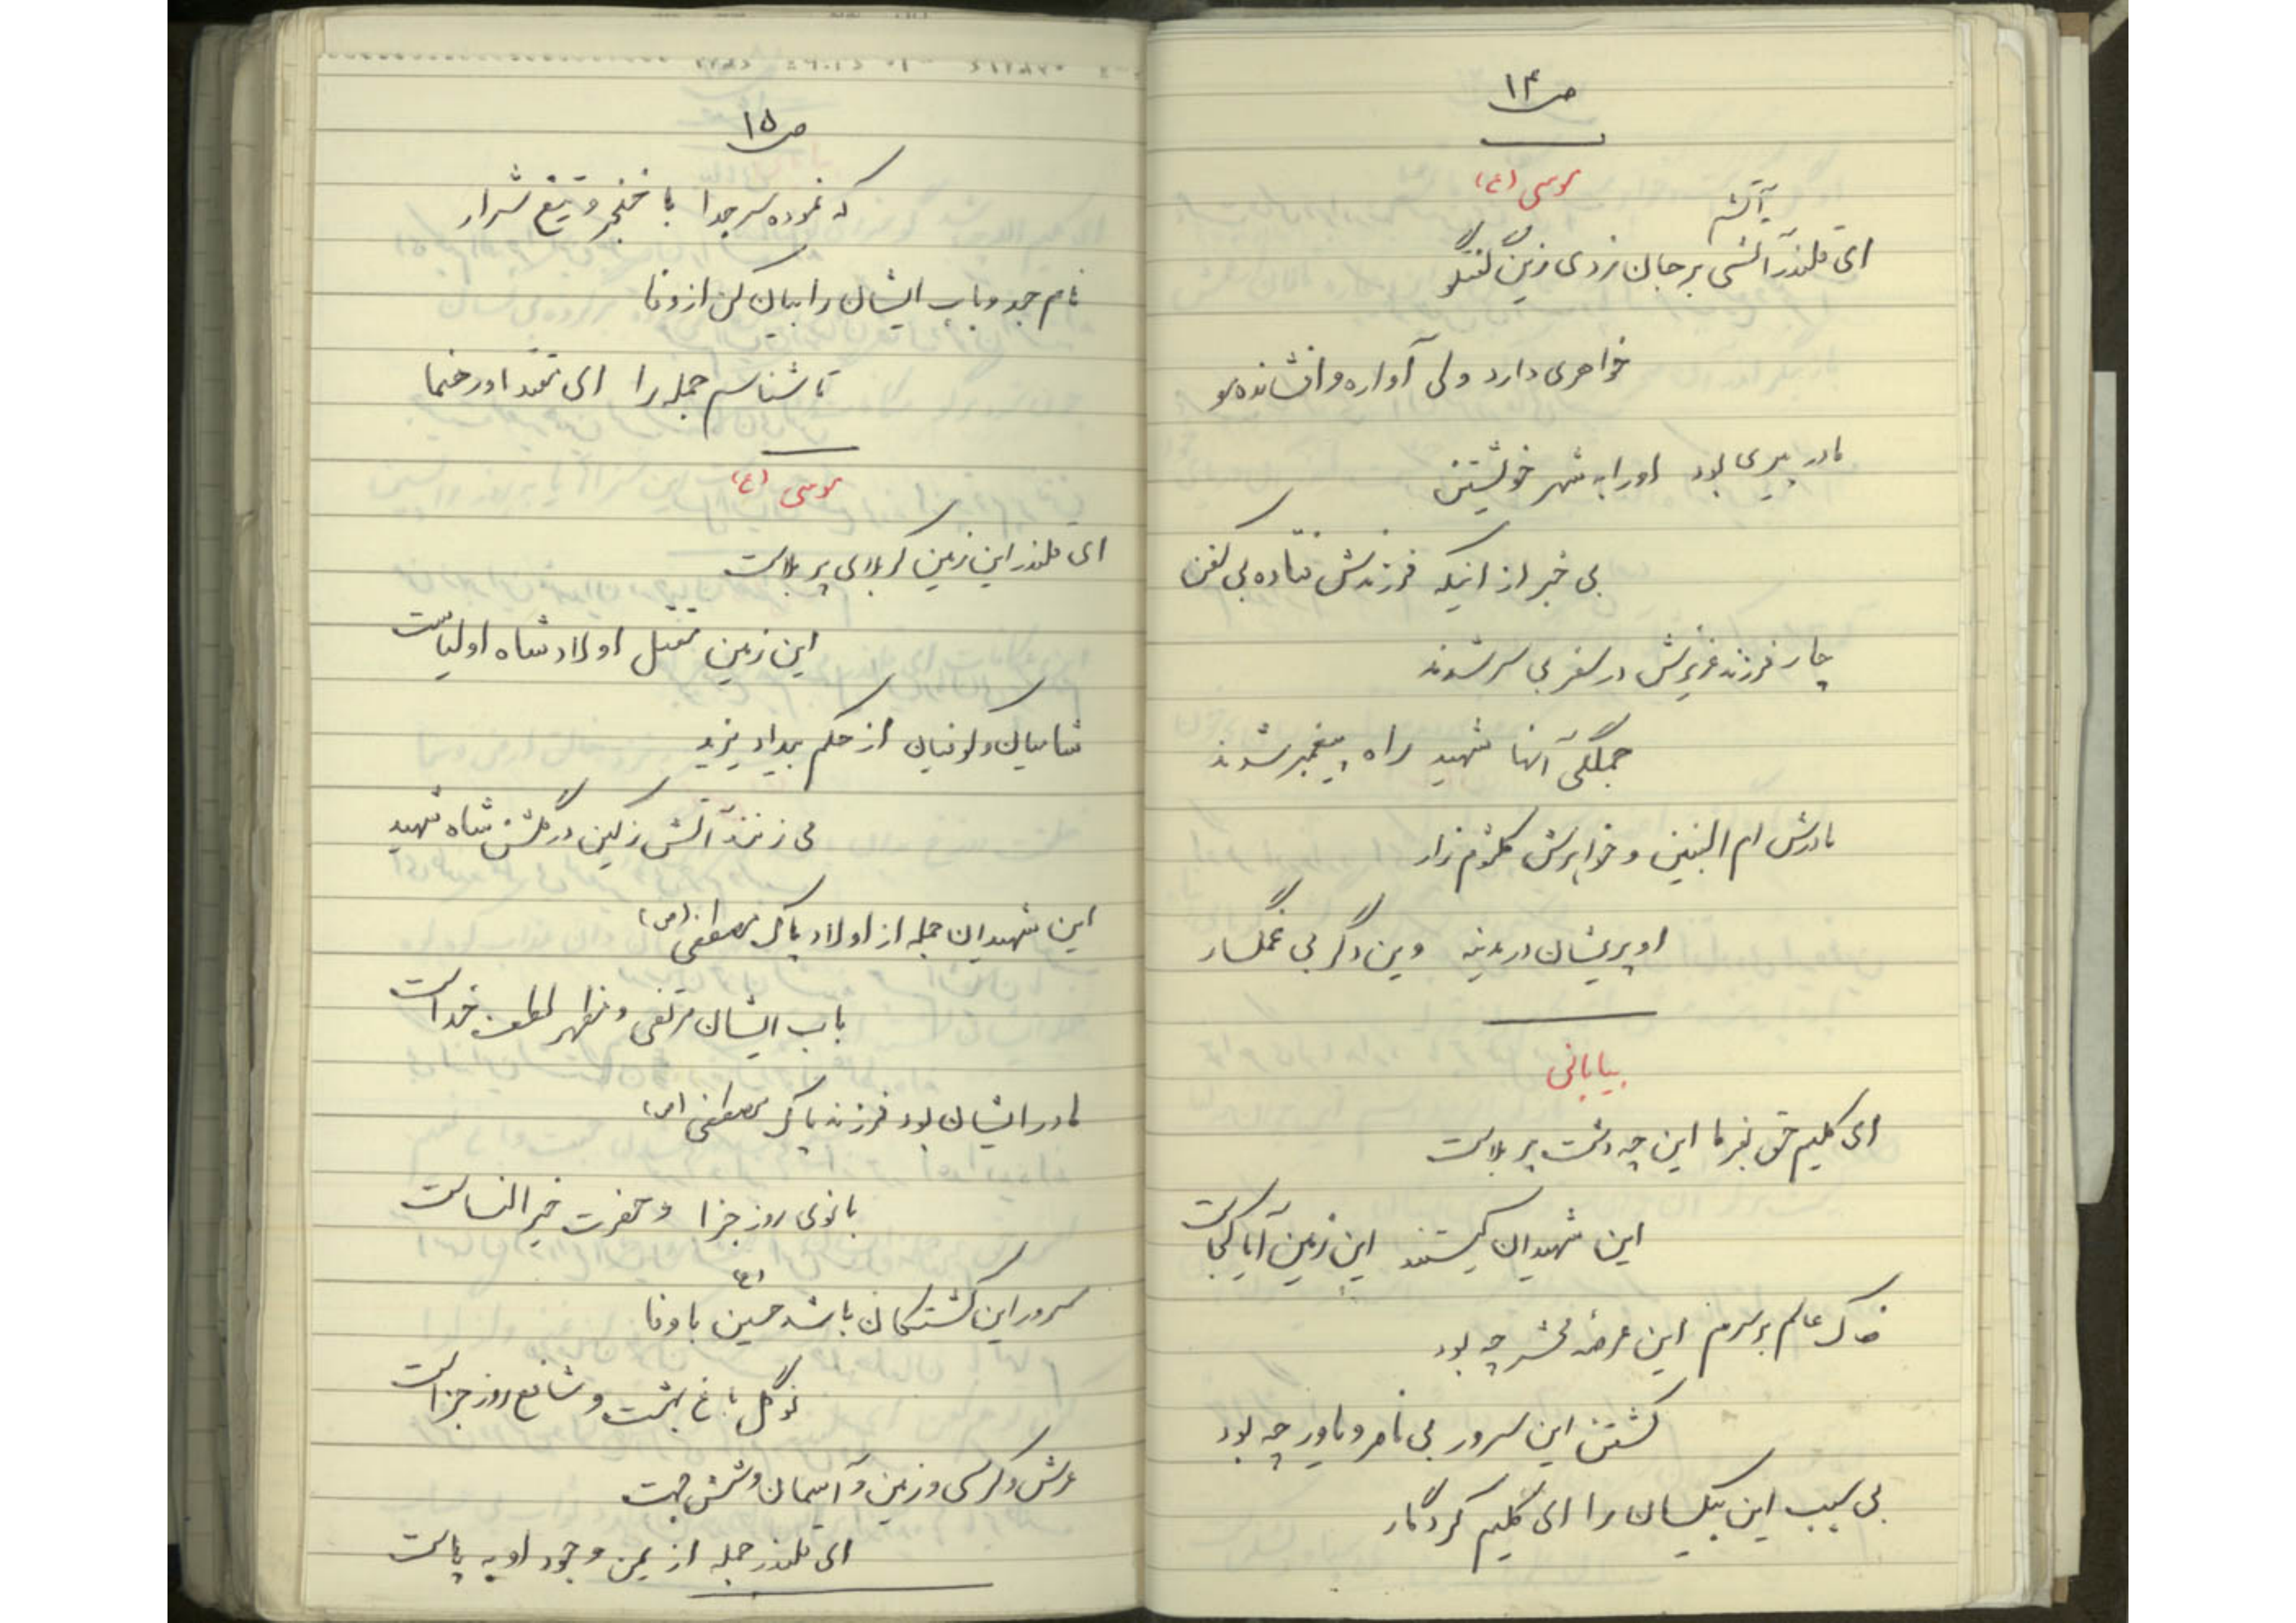 ص ۱۴
موسی (ع)
آتشم
ای قلندر آتشی بر جان زدی زین گفتگو
خواهری دارد ولی آواره و افشانده مو
مادر پیری بود او را به شهر خویشتن
بی خبر از اینکه فرزندش فتاده بی کفن
چار فرزند عزیزش در سفر بی سر شدند
جملگی آنها شهید راه پیغمبر شدند
مادرش ام البنین و خواهرش کلثوم زار
او پریشان در مدینه وین دگر بی غمگسار
بیابانی
ای کلیم حق بفرما این چه دشت پر بلاست
این شهیدان کیستند این زمین آیا کجاست
خاک عالم بر سرم این عرصه محشر چه بود
کشتن این سرور بی ناصر و یاور چه بود
بی سبب این بیکسان را ای کلیم کردگار
ص ۱۵
که نموده سر جدا با خنجر و تیغ شرار
نام جد و باب ایشان را بیان کن از وفا
تا شناسم جمله را ای مقتدا و رهنما
موسی (ع)
ای قلندر این زمین کربلای پر بلاست
این زمین مقتل اولاد شاه اولیاست
شامیان و کوفیان از حکم بیداد یزید
می زنند آتش زکین در گلشن شاه شهید
این شهیدان جمله از اولاد پاک مصطفی (ص)
باب ایشان مرتضی و مظهر لطف خداست
مادر ایشان بود فرزند پاک مصطفی (ص)
بانوی روز جزا و حضرت خیر النساست
سرور این کشتگان باشد حسین (ع) با وفا
نوگل باغ بهشت و شافع روز جزاست
عرش و کرسی و زمین و آسمان و شش جهت
ای قلندر جمله از یمن وجود او به پاست